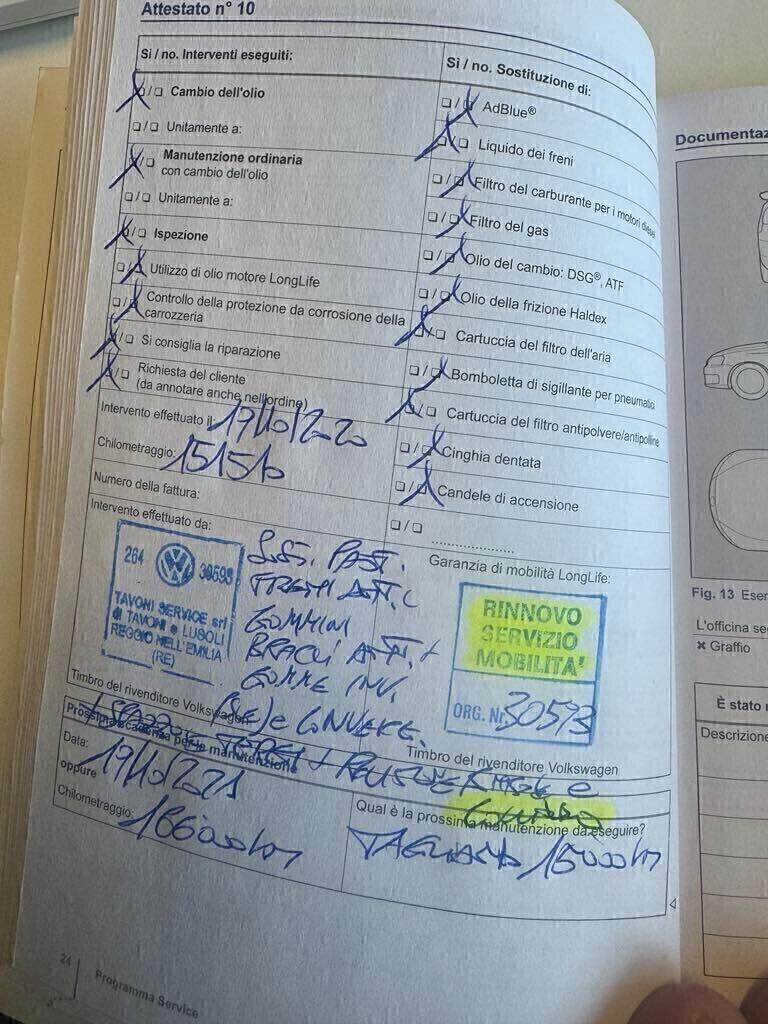 Attestato n° 10
Sì / no. Interventi eseguiti:
❑/❑ Cambio dell'olio
❑/❑ Unitamente a:
❑/❑ Manutenzione ordinaria
con cambio dell'olio
❑/❑ Unitamente a:
❑/❑ Ispezione
❑/❑ Utilizzo di olio motore LongLife
❑/❑ Controllo della protezione da corrosione della
carrozzeria
❑/❑ Si consiglia la riparazione
❑/❑ Richiesta del cliente
(da annotare anche nell'ordine)
Intervento effettuato il: 19/10/2020
Chilometraggio:
Numero della fattura:
Intervento effettuato da:
264 30593
TAVONI SERVICE srl
di TAVONI e LUSOLI
REGGIO NELL'EMILIA
(RE)
PAST.
GOMMINI
GOMME INV.
Timbro del rivenditore Volkswagen
Sì / no. Sostituzione di:
❑/❑ AdBlue®
❑/❑ Liquido dei freni
❑/❑ Filtro del carburante per i motori diesel
❑/❑ Filtro del gas
❑/❑ Olio del cambio: DSG®, ATF
❑/❑ Olio della frizione Haldex
❑/❑ Cartuccia del filtro dell'aria
❑/❑ Bomboletta di sigillante per pneumatici
❑/❑ Cartuccia del filtro antipolvere/antipolline
❑/❑ Cinghia dentata
❑/❑ Candele di accensione
❑/❑ ....................
Garanzia di mobilità LongLife:
RINNOVO
SERVIZIO
MOBILITA'
ORG. Nr. 30593
Timbro del rivenditore Volkswagen
Prossima scadenza per la manutenzione
Data: 19/10/2021
oppure
Chilometraggio:
Qual è la prossima manutenzione da eseguire?
TAGLIANDO 15000 km
24
Programma Service
Documentaz
Fig. 13 Esen
L'officina se
× Graffio
È stato
Descrizione